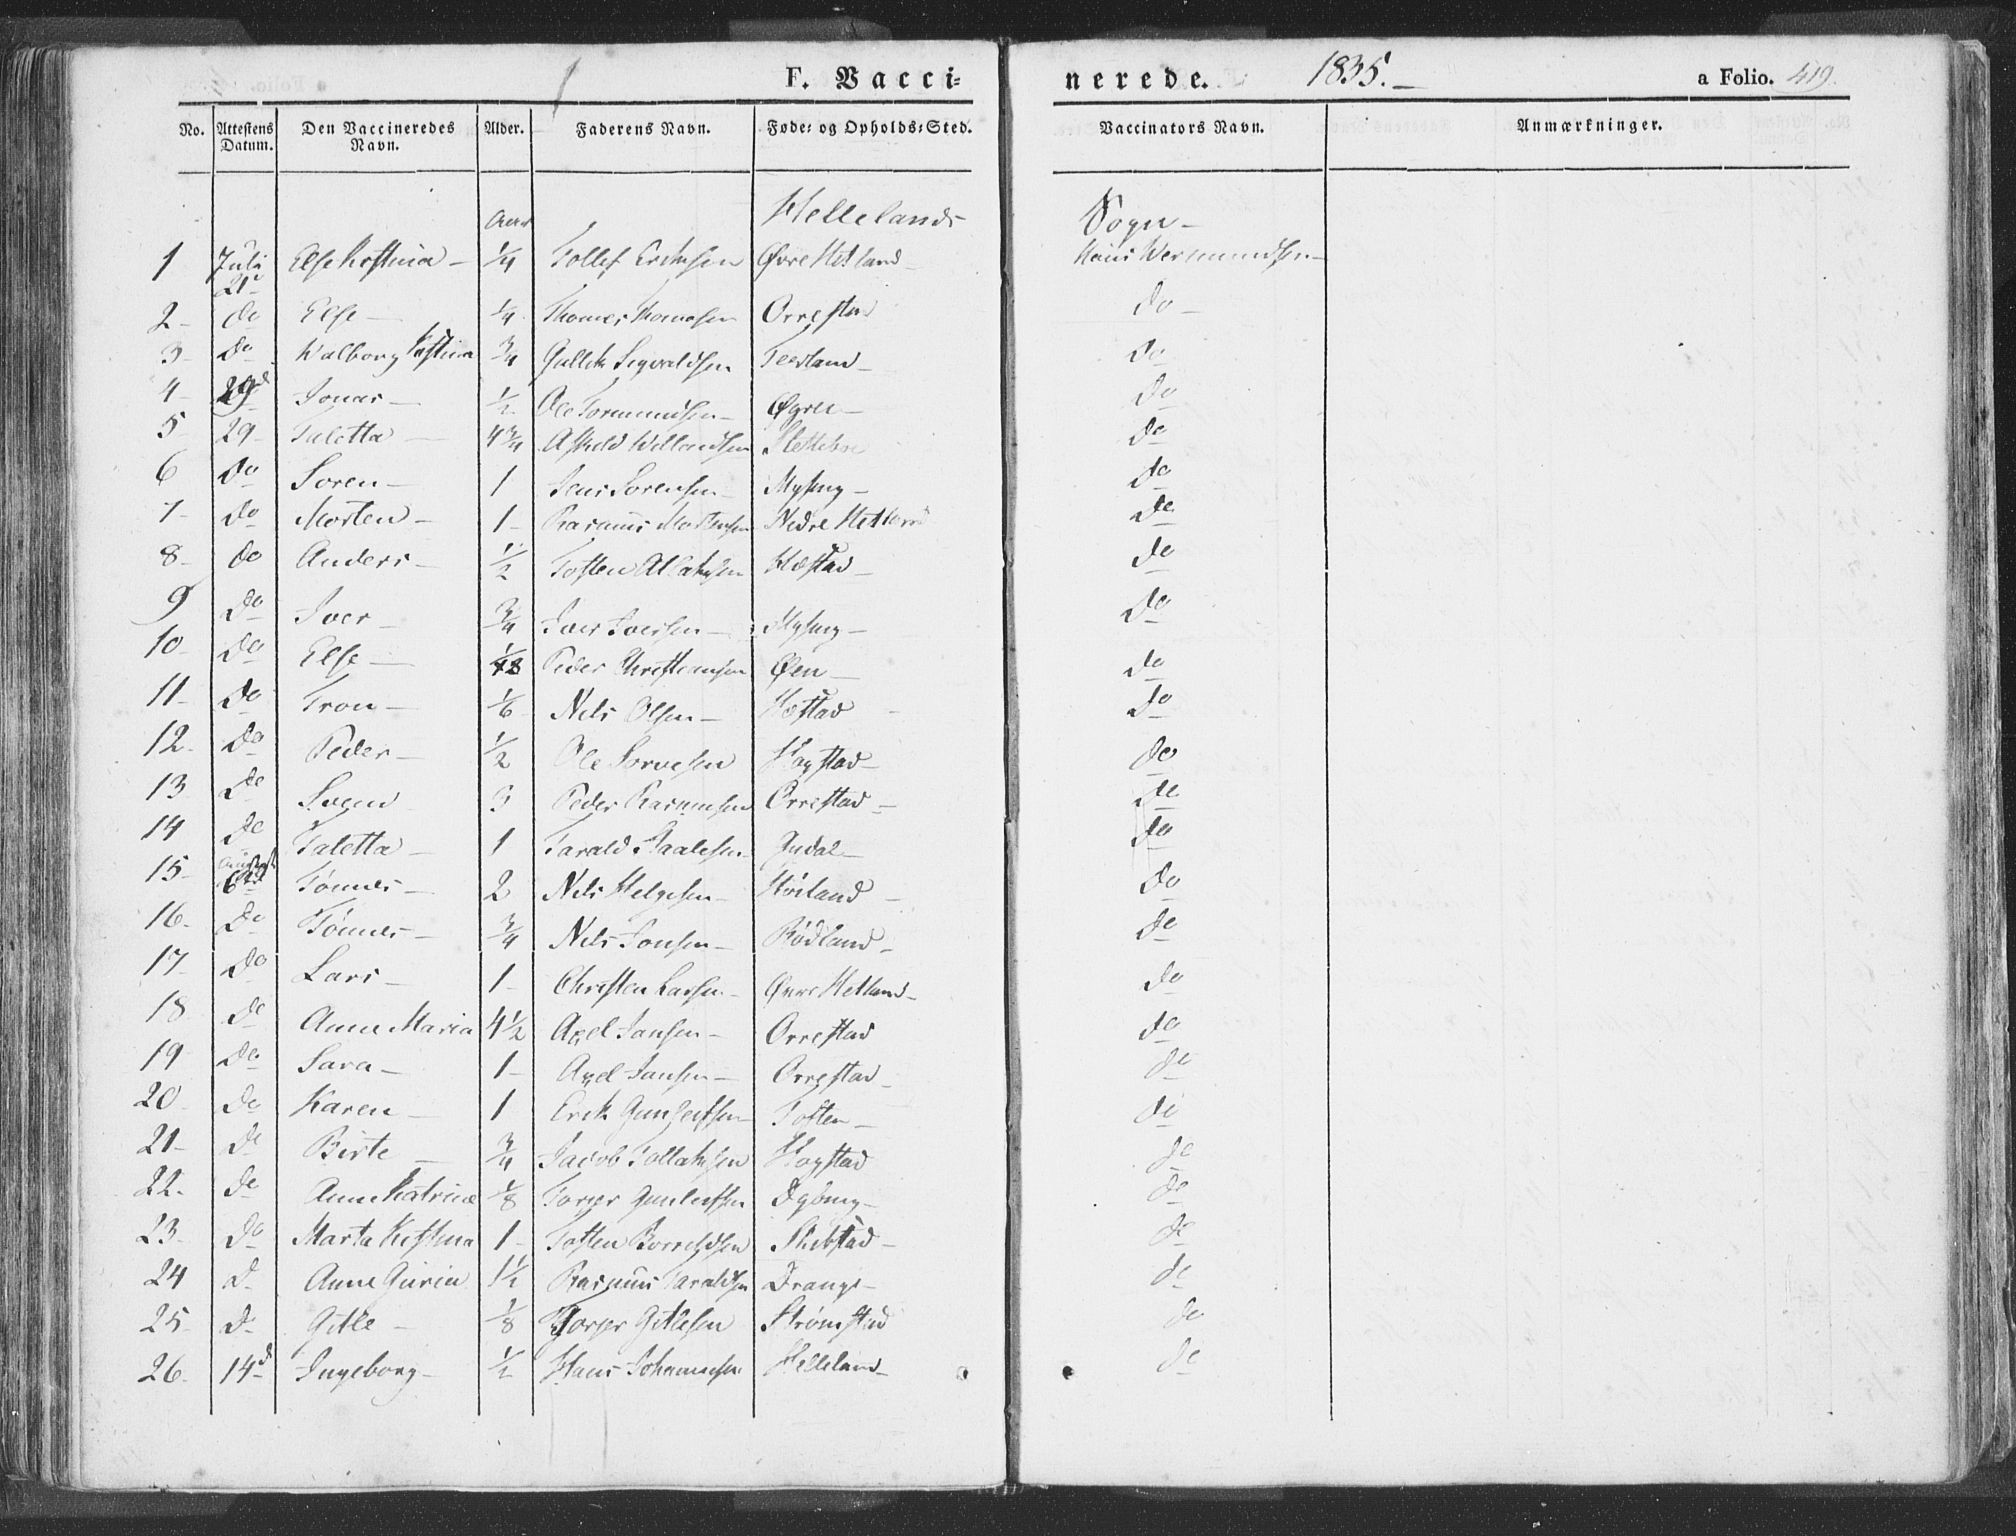 F. Vacci-
nerede. 1835. a Folio. 419.
No. Attestens Datum. Den Vaccineredes Navn. Alder. Faderens Navn. Føde- og Opholds-Sted. Vaccinators Navn. Anmærkninger.
Aar Hellelands Sogn
1 Juli 21 Else Kistina 1/4 Tollef Eriksen Øvre Hetland Hans Wermundsen
2 do Else 1/4 Thomes Thomesen Orrestad do
3 do Walborg Kistina 3/4 Gullek Sigvaldsen Teetland do
4 29 Jonas 1/2 Ole Tormundsen Øgree do
5 29 Taletta 4 3/4 Askeld Willandsen Sletteboe do
6 do Soren 1 Jens Sorensen Mysing do
7 do Morten 1 Rasmus Mortensen Nedre Hetland do
8 do Anders 1/2 Tosten Aslaksen Hæstad do
9 do Iver 3/4 Iver Iversen Mysing do
10 do Else 1/8 Peder Christiansen Øen do
11 do Tron 1/6 Nils Olsen Hæstad do
12 do Peder 1/2 Ole Sorensen Hogstad do
13 do Svend 3 Peder Rasmusen Orrestad do
14 do Taletta 1 Tarald Staalesen Gudal do
15 August 6 Tønnes 2 Nils Helgesen Høiland do
16 do Tønnes 3/4 Nils Jonsen Rødland do
17 do Lars 1 Christen Larsen Øvre Hetland do
18 do Anne Maria 4 1/2 Axel Jansen Orrestad do
19 do Sara 1 Axel Jansen Orrestad do
20 do Karen 1 Erik Gunleifsen Toften do
21 do Birte 3/4 Jacob Tollaksen Hogstad do
22 do Anne Katrine 1/8 Torger Gunleifsen Dybing do
23 do Marta Kistina 1 Tosten Borreldsen Skibstad do
24 d Anne Guria 1 1/2 Rasmus Taraldsen Drange do
25 d Gitle 1/8 Torger Gitlesen Strømstad do
26 14d Ingeborg 1/2 Hans Johannesen Helleland do